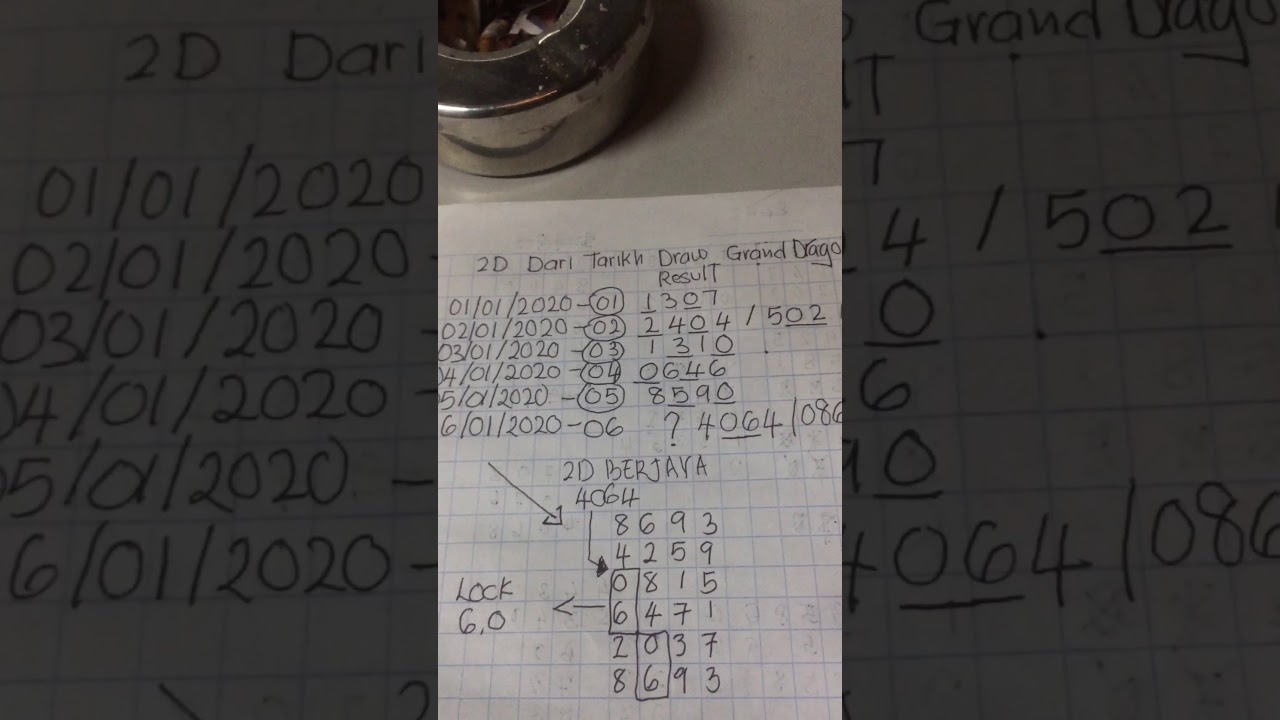 2D Dari Tarikh Draw Grand Drago
RESULT
01/01/2020-01 1307
02/01/2020-02 2404 / 502
03/01/2020-03 1310
04/01/2020-04 0646
5/01/2020-05 8590
6/01/2020-06 ? 4064/086
2D BERJAYA
4064
8693
4259
0815
LOCK 6471
6,0
2037
8693